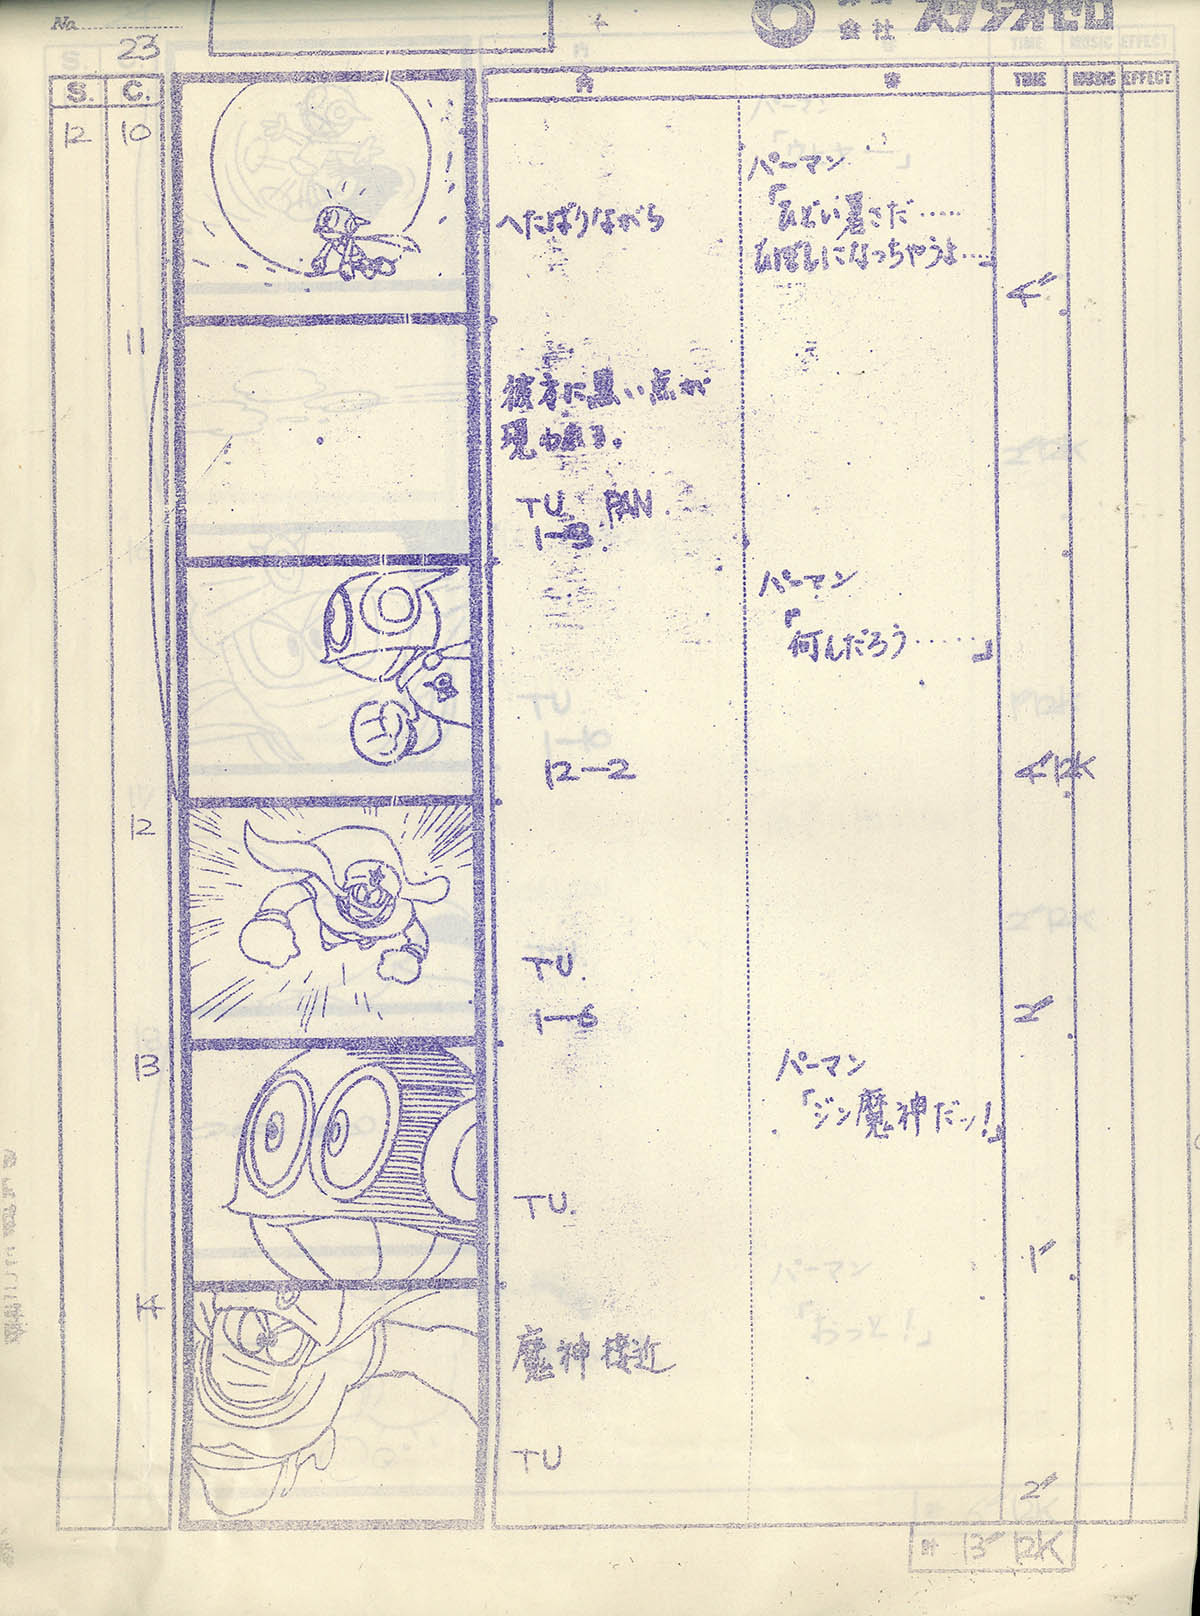 No.
23
会社 スタヂオゼロ
S. C. 内 容 TIME MUSIC EFFECT
12 10
へたばりながら
パーマン
「ひどい暑さだ……
ひぼしになっちゃうよ…」
4"
11
彼方に黒い点が
現われる。
TU. PAN.
パーマン
「何んだろう……」
12—2
4" 12K
12
TU.
1—6
2"
13
パーマン
「ジン魔神だッ!」
TU.
1"
14
魔神接近
TU
2"
計 13" 12K